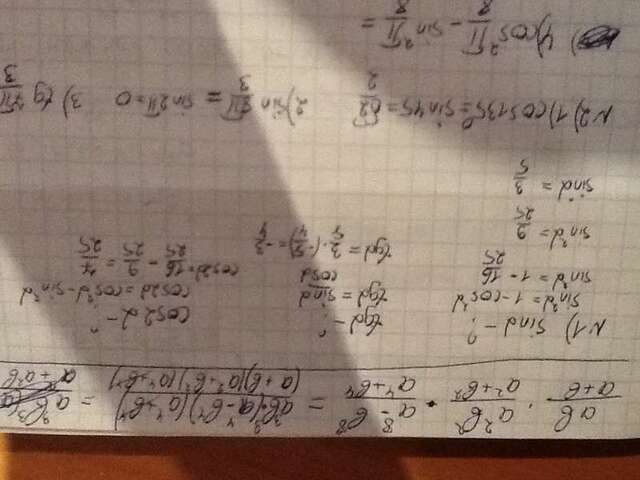 ab/(a+b) · a²b²/(a²+b²) · (a⁸-b⁸)/(a⁴+b⁴) = a³b³(a⁴-b⁴)(a⁴+b⁴)/((a+b)(a²+b²)(a⁴+b⁴)) = a³b³
N1) sinα - ?
sin²α = 1 - cos²α
sin²α = 1 - 16/25
sin²α = 9/25
sinα = 3/5
tgα - ?
tgα = sinα/cosα
tgα = 3/5 · (-5/4) = -3/4
cos2α - ?
cos2α = cos²α - sin²α
cos2α = 16/25 - 9/25 = 7/25
N2) 1) cos135° = sin45 = √2/2 2) sin π/3 = sin2π = 0 3) tg 7π/3
4) cos² π/8 - sin² π/8 =